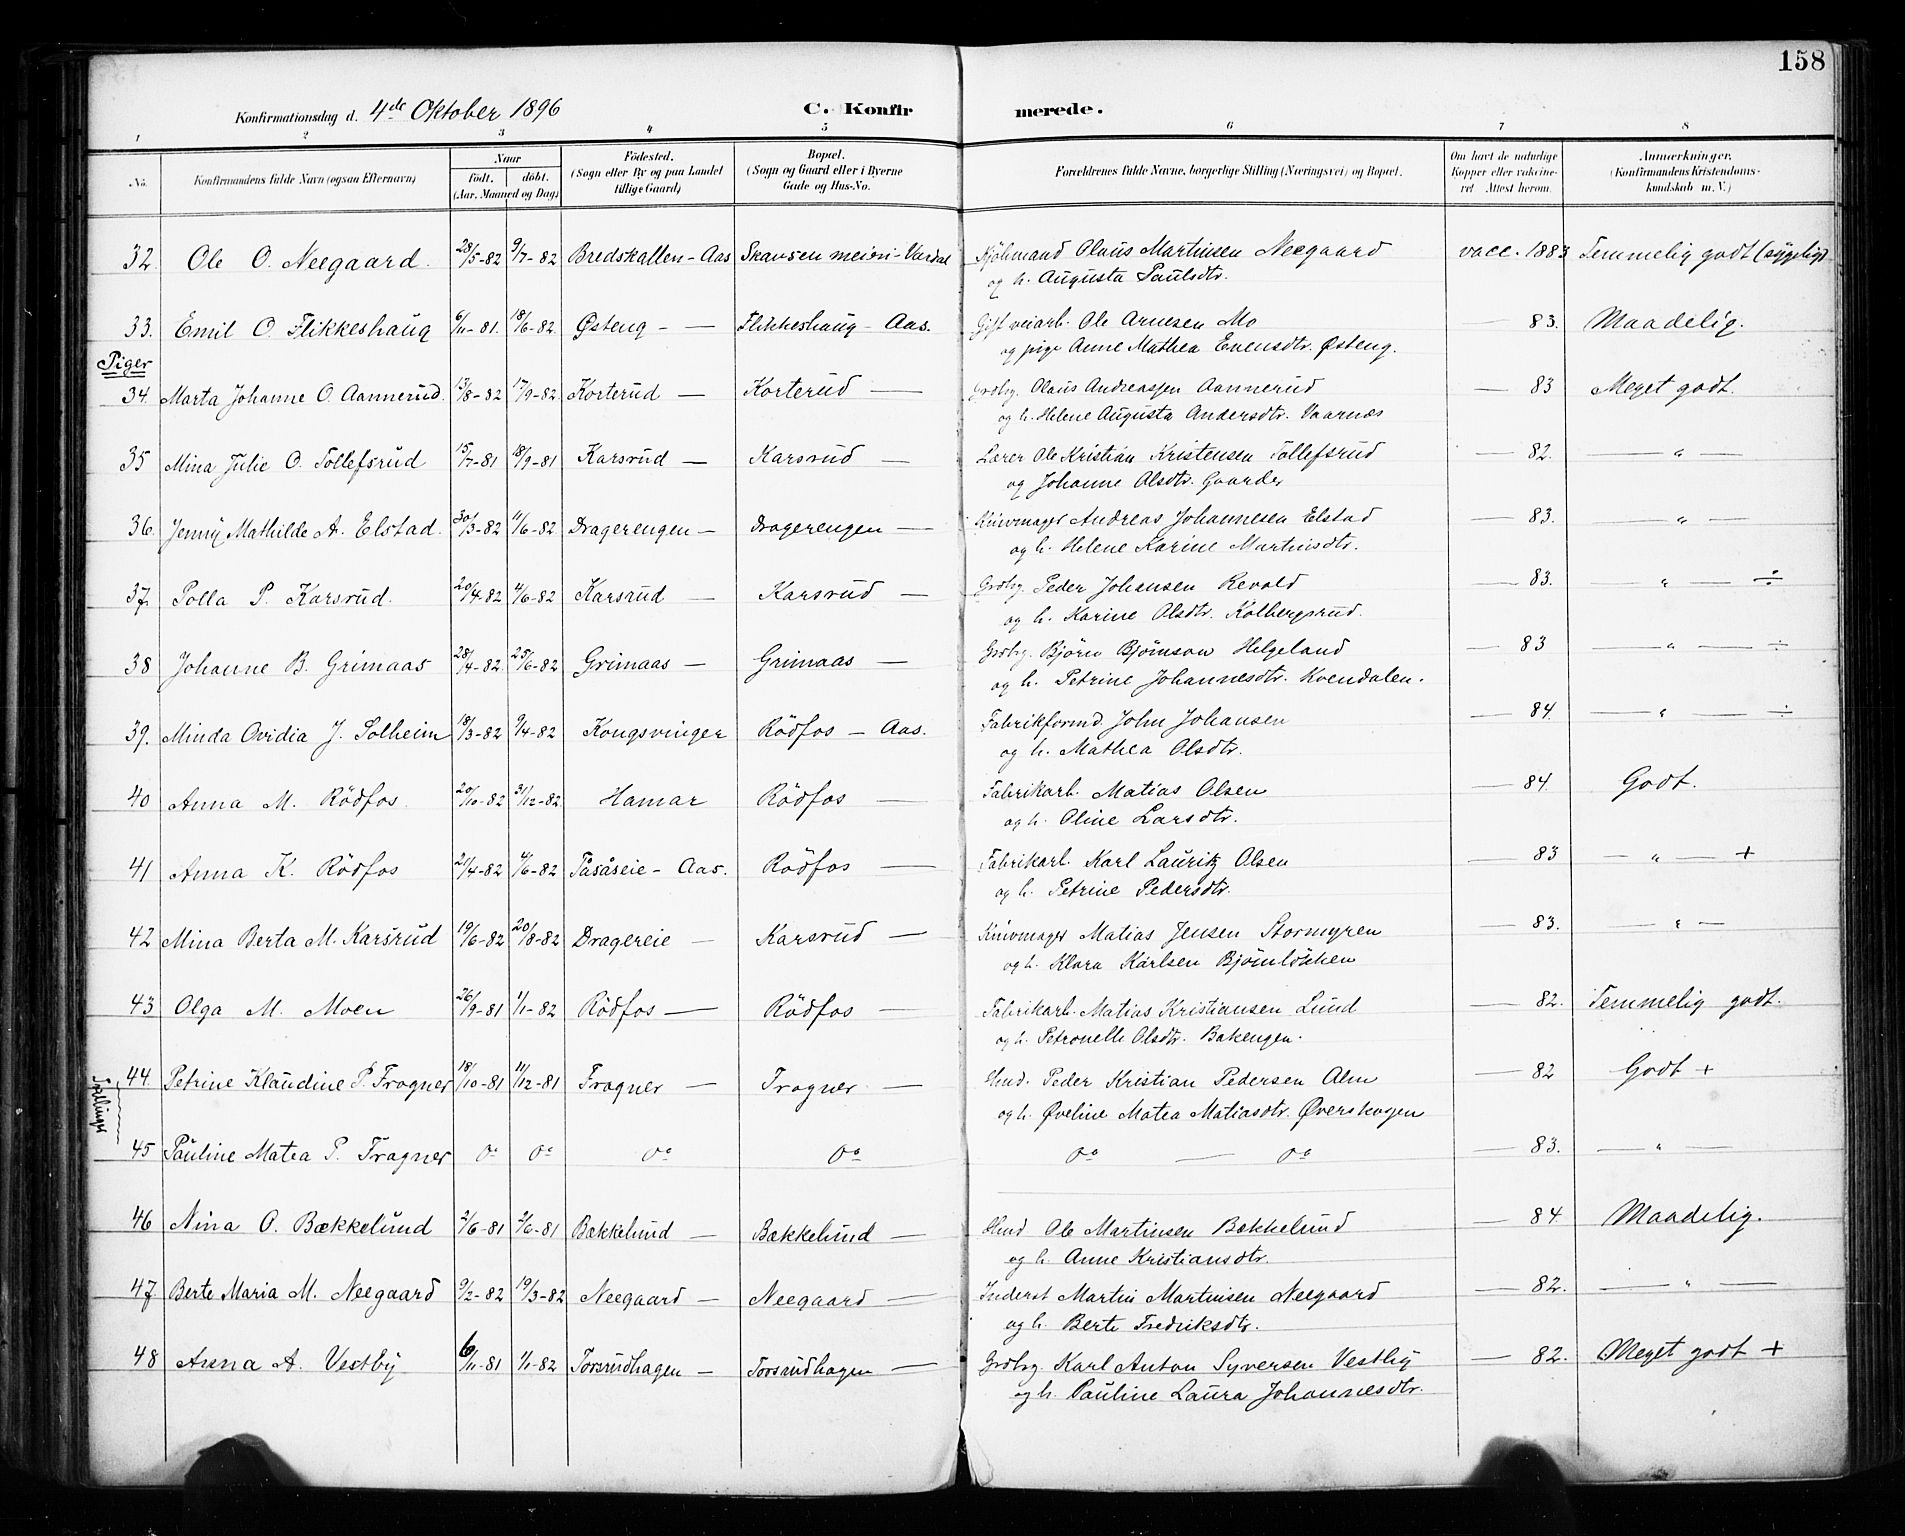 158
Konfirmationsdag d. 4de Oktober 1896 C. Konfirmerede.
1 2 3 4 5 6 7 8
No. Konfirmandens fulde Navn (ogsaa Efternavn) Naar født. døbt. (Aar, Maaned og Dag) Fødested. (Sogn eller By og paa Landet tillige Gaard) Bopæl. (Sogn og Gaard eller i Byerne Gade og Hus-No. Forældrenes fulde Navne, borgerlige Stilling (Næringsvei) og Bopæl. Om havt de naturlige Kopper eller vaccineret. Attest herom. Anmærkninger. (Konfirmandens Kristendomskundskab m. V.)
32. Ole O. Neegaard. 28/5-82 9/7-82 Bredskallen - Aas Skansen meieri - Vardal Kjöbmand Olaus Martinsen Neegaard vacc. 1883 Temmelig godt (sygelig)
og h. Augusta Paulsdtr.
33. Emil O. Flikkeshaug 6/11-81. 18/6-82. Østeng - — Flikkeshaug - Aas. Gift veiarb. Ole Arnesen Mo — 83. Maadelig.
og pige Anne Mathea Evensdtr. Østeng.
Piger
34. Marta Johanne O. Aannerud. 13/8-82 17/9-82. Korterud — Korterud — Grdbr. Olaus Andreassen Aannerud — 83 Meget godt.
og h. Helene Augusta Andersdtr. Vaarnæs
35 Mina Julie O. Tollefsrud 15/7-81 18/9-81 Karsrud — Karsrud — Lærer Ole Kristian Kristensen Tollefsrud — 82. — " —
og Johanne Olsdtr. Gaarder
36. Jenny Mathilde A. Elstad. 30/3-82 11/6-82 Dragerengen — Dragerengen — Knivmager Andreas Johannesen Elstad — 83. — " —
og h. Helene Karine Martinsdtr.
37. Polla P. Karsrud. 20/4-82 4/6-82 Karsrud — Karsrud — Grdbr. Peder Johansen Revold — 83. — " — ÷
og h. Karine Olsdtr. Kolbergsrud.
38 Johanne B. Grimaas 28/4-82. 25/6-82 Grimaas — Grimaas — Grdbr. Björn Björnson Helgeland — 83 — " — ÷
og h. Petrine Johannesdtr. Kvendalen.
39. Minda Ovidia J. Solheim 18/3-82 9/4-82 Kongsvinger Rödfos — Aas. Fabrikformd. John Johansen — 84. — " — ÷
og h. Mathea Olsdtr.
40 Anna M. Rödfos. 20/10-82 31/12-82. Hamar Rödfos — Fabrikarb. Matias Olsen — 84. Godt.
og h. Oline Larsdtr.
41 Anna K. Rödfos 21/4-82 4/6-82 Paasåseie - Aas. Rödfos — Fabrikarb. Karl Lauritz Olsen — 83 — " — +
og h. Petrine Pedersdtr.
42 Mina Berta M. Karsrud 19/6-82 20/8-82 Dragereie — Karsrud — Knivmager Matias Jensen Stormyren — 83. — " —
og h. Klara Karlsen Björnlökken
43 Olga M. Moen 26/9-81 1/1-82 Rödfos — Rödfos — Fabrikarb. Matias Kristiansen Lund — 82. Temmelig godt.
og h. Petronelle Olsdtr. Bakengen.
Tvillinger
44. Petrine Klaudine P. Fragner 18/10-81 11/12-81 Fragner — Fragner — Hmd. Peder Kristian Pedersen Alm — 82 Godt +
og h. Øveline Matea Matiasdtr. Øverskogen
45 Pauline Matea P. Fragner do do do do do — do — 83. — " —
46 Nina O. Bækkelund 2/6-81 2/6-81 Bækkelund — Bækkelund — Hmd Ole Martinsen Bækkelund — 84. Maadelig.
og h. Anne Kristiansdtr.
47. Berte Maria M. Neegaard 9/2-82 19/3-82 Neegaard — Neegaard — Inderst Martin Martinsen Neegaard — 82. — " —
og h. Berte Fredriksdtr.
48 Anna A. Vestby 6/11-81 1/1-82 Torsrudhagen — Torsrudhagen — Grdbr. Karl Anton Syversen Vestby — 82. Meget godt +
og h. Pauline Laura Johannesdtr.